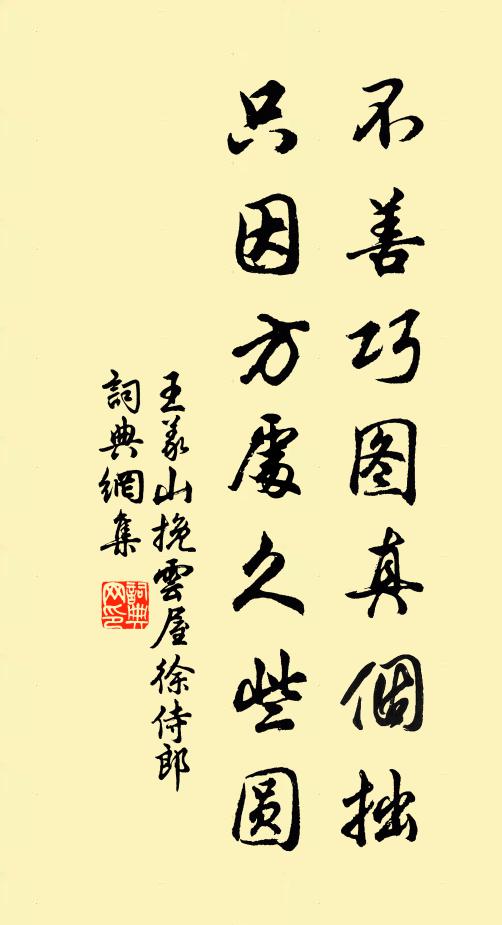 不善巧图真個拙
只因方處久些圆
王義山挽雲屋徐侍郎
詞典網集
詞典网印